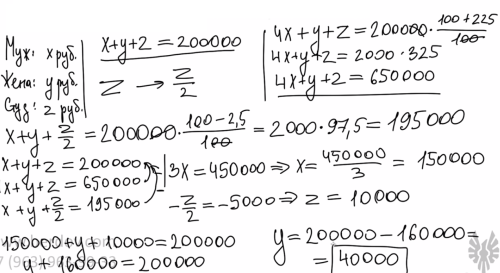 Муж: x руб.
Жена: y руб.
Студ: z руб.
x+y+z = 200000
z → z/2
4x+y+z = 200000·(100+225)/100
4x+y+z = 2000·325
4x+y+z = 650000
x+y+z/2 = 200000·(100-2,5)/100 = 2000·97,5 = 195000
x+y+z = 200000
x+y+z = 650000
x+y+z/2 = 195000
3x = 450000 ⇒ x = 450000/3 = 150000
-z/2 = -5000 ⇒ z = 10000
150000+y+10000 = 200000
y+160000 = 200000
y = 200000-160000 =
= 40000